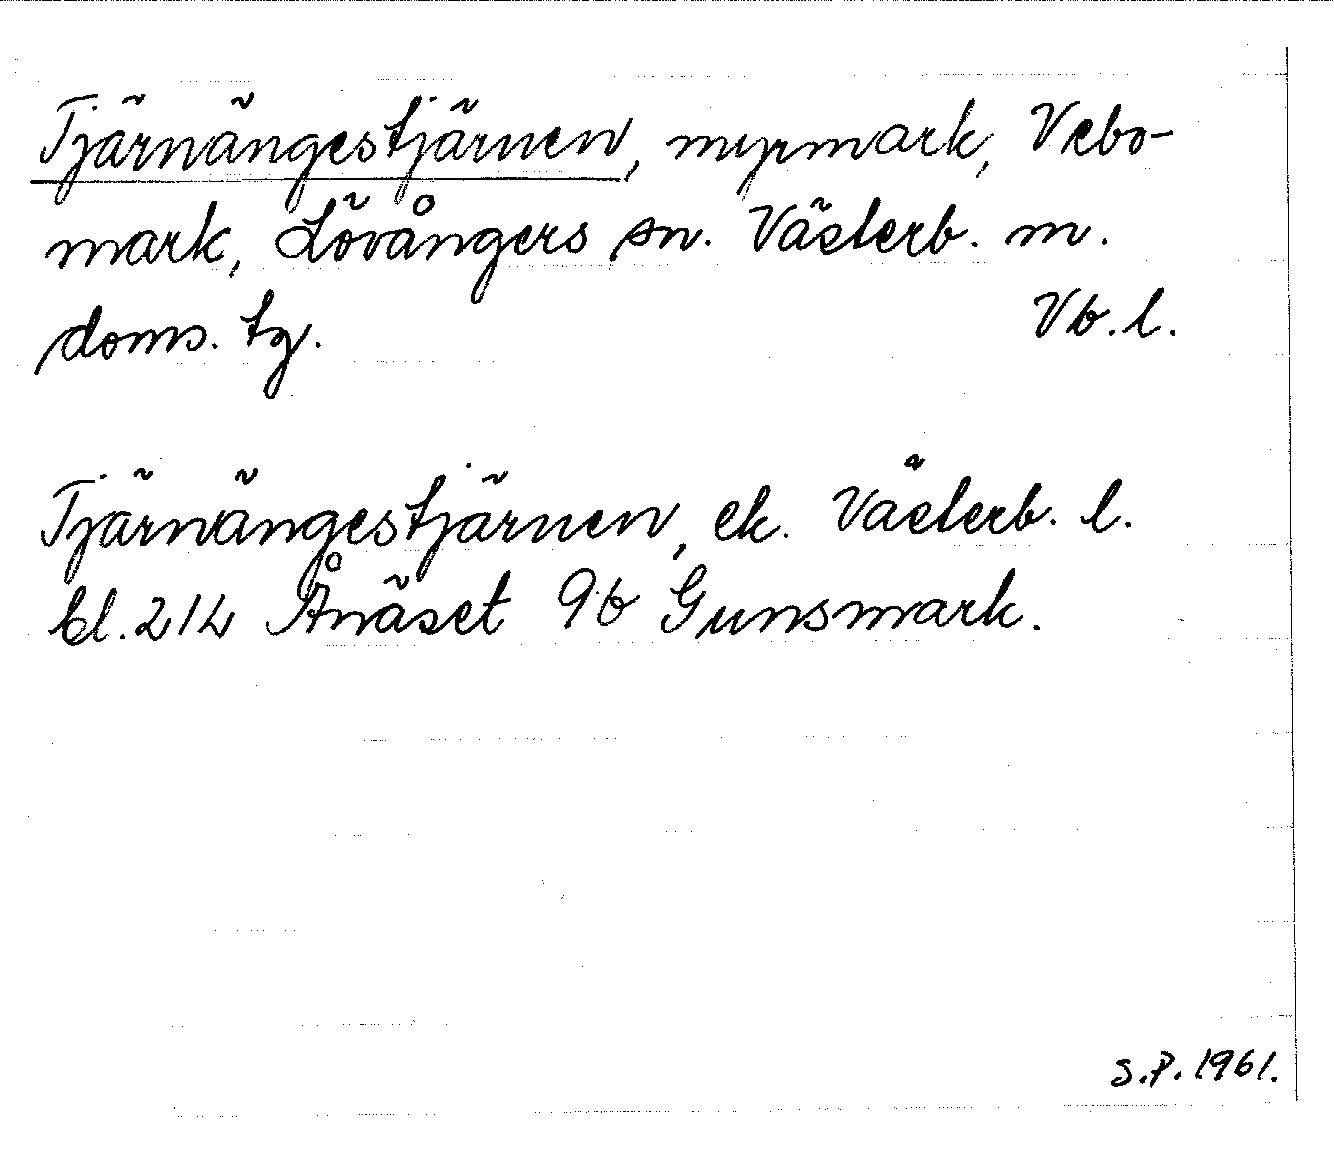 Tjärnängestjärnen, myrmark, Vebo-
mark, Lövångers sn. Västerb. m.
doms. tg. Vb. l.
Tjärnängestjärnen, ek. Västerb. l.
bl. 214 Ånäset 9b Gunsmark.
S.P. 1961.